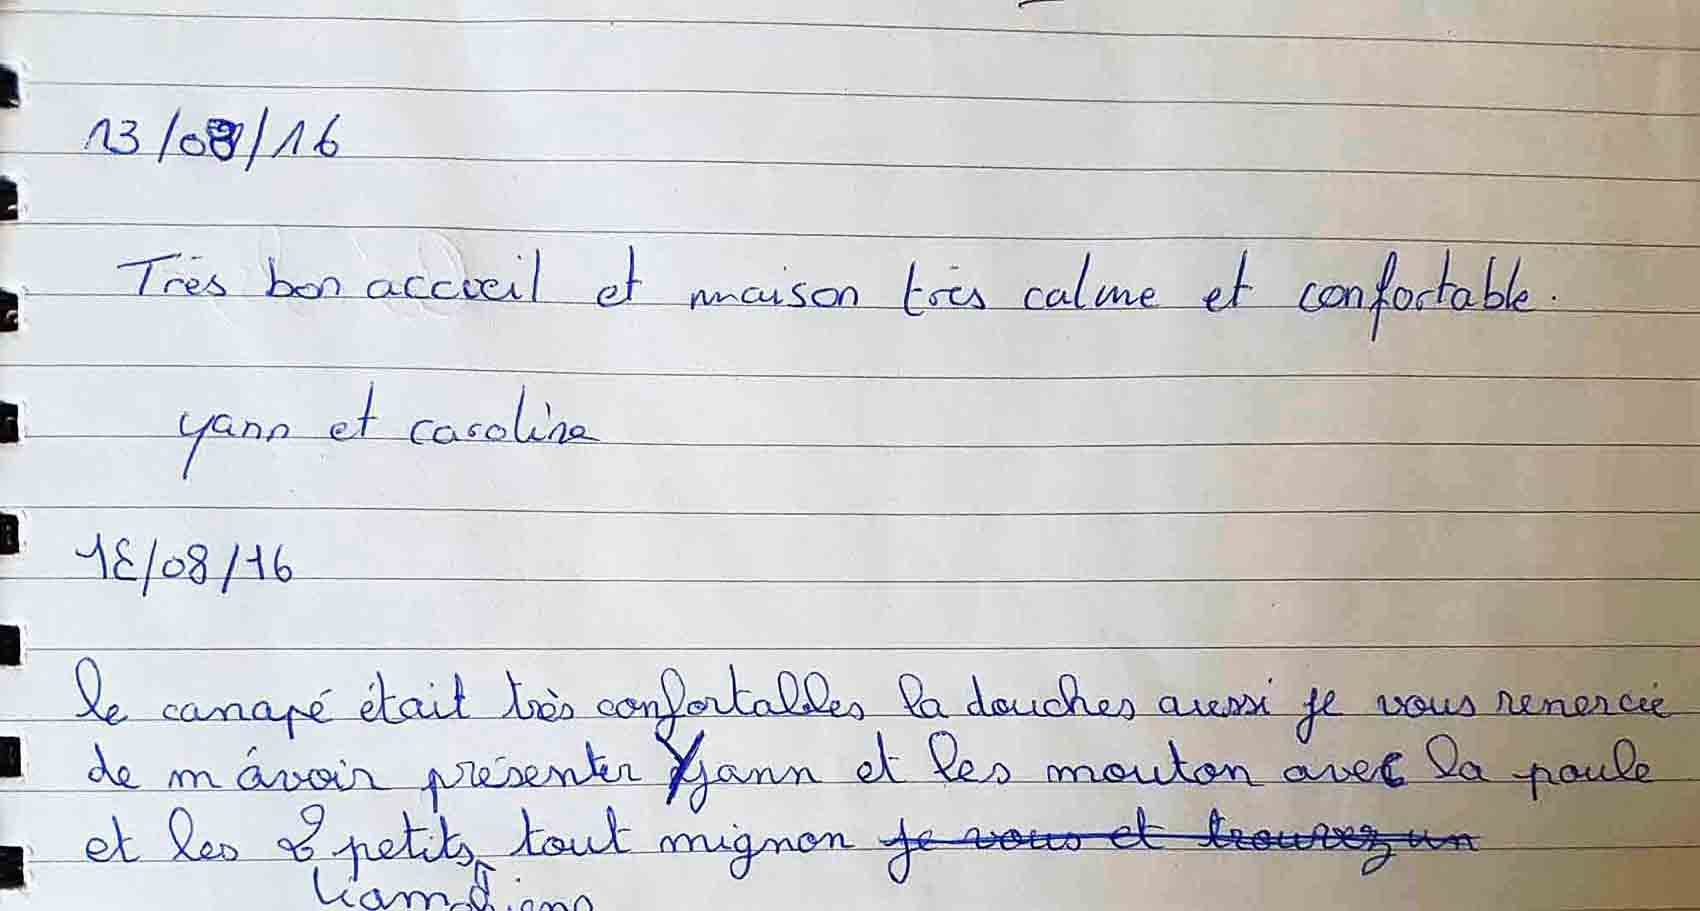 13/08/16
Très bon accueil et maison très calme et confortable.
yann et caroline
18/08/16
le canapé était très confortables la douches aussi je vous remercie
de m'avoir présenter Yann et les mouton avec la poule
et les 2 petits tout mignon je vous et trouvez un